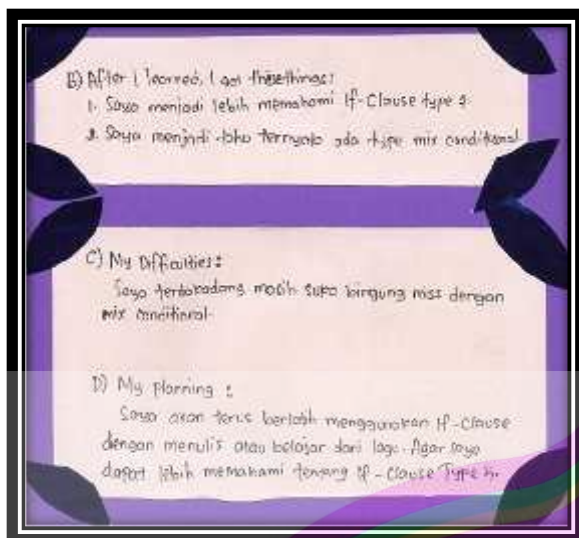 B) After I learned, I got these things:
1. Saya menjadi lebih memahami If-Clause type 2
2. Saya menjadi tahu ternyata ada type mix conditional
C) My Difficulties:
Saya terkadang masih suka bingung miss dengan
mix conditional.
D) My planning :
Saya akan terus berlatih menggunakan If-Clause
dengan menulis atau belajar dari lagu. Agar saya
dapat lebih memahami tentang If-Clause Type